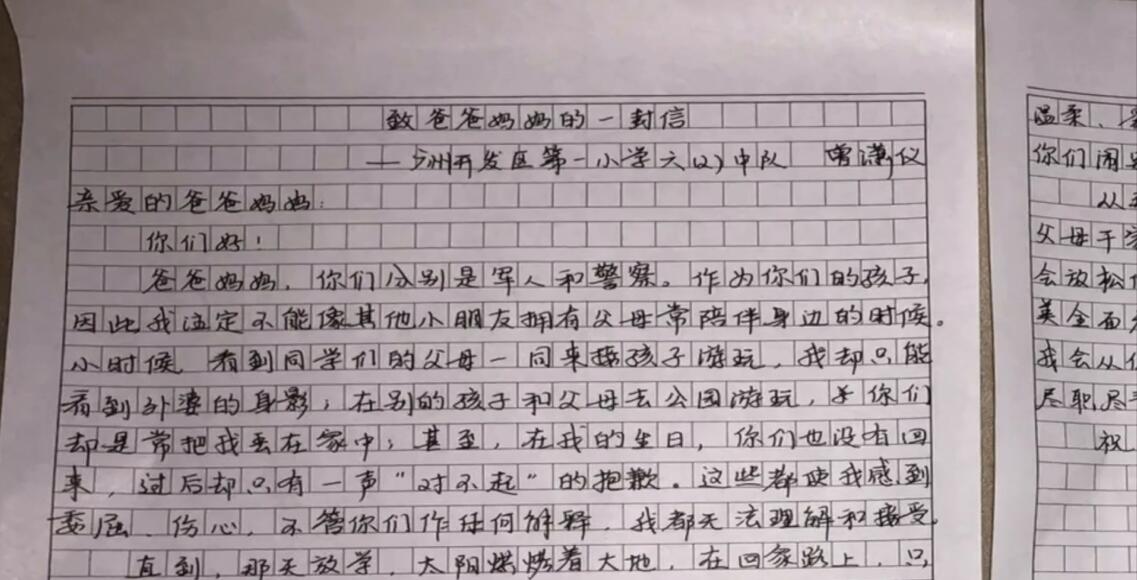 致爸爸妈妈的一封信
——泸州开发区第一小学六(2)中队 曾潇仪
亲爱的爸爸妈妈:
你们好!
爸爸妈妈,你们分别是军人和警察。作为你们的孩子,
因此我注定不能像其他小朋友拥有父母常陪伴身边的时候。
小时候,看到同学们的父母一同来接孩子游玩,我却只能
看到外婆的身影;在别的孩子和父母去公园游玩,关你们
却是常把我丢在家中;甚至,在我的生日,你们也没有回
来,过后却只有一声“对不起”的抱歉。这些都使我感到
委屈、伤心,不管你们作任何解释,我都无法理解和接受。
直到,那天放学,太阳烘烤着大地,在回家路上,只
温柔、
你们闹
从
父母干
会放松
美金面
我会从
尽职尽
祝